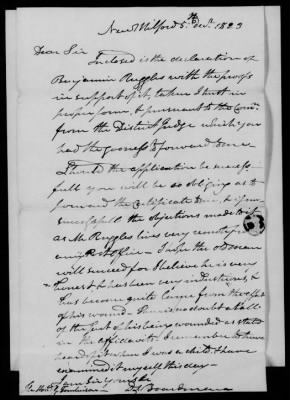 New Milford 5th Decr. 1823
Dear Sir
Inclosed is the declaration of
Benjamin Ruggles with the proofs
in support of it, taken I trust in
proper form, & pursuant to the
from the District Judge which you
had the goodness to forward to me
Should the application be success-
full you will be so obliging as to
forward the Certificate to me, if
the objections made to it
as Mr. Ruggles lives very remote from
any Post office — I hope the old man
will succeed for I believe he is very
honest & has been very industrious, &
has become quite lame from the effect
of his wound — there is no doubt at all
of the fact of his being wounded as stated
in the affidavits I remember to have
heard of it when I was a child & have
examined it myself this day —
I am Sir yours &c
Boardman